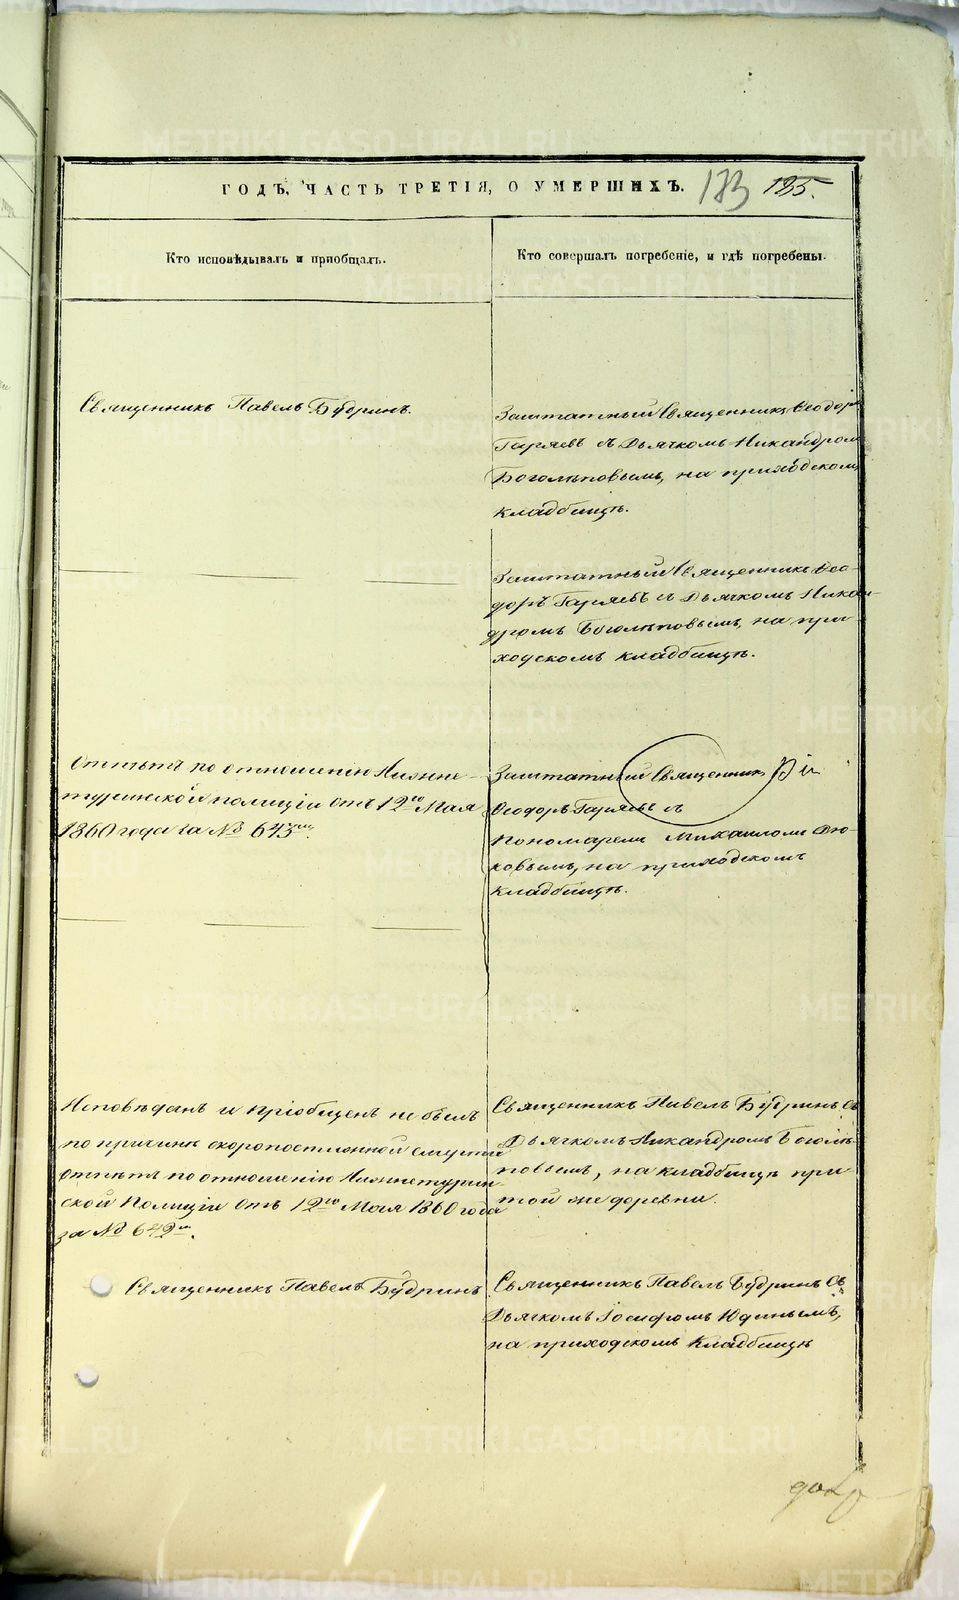 ГОДЪ, ЧАСТЬ ТРЕТІЯ, О УМЕРШИХЪ. 173 185.
Кто исповѣдывалъ и пріобщалъ.
Кто совершалъ погребеніе, и гдѣ погребены.
Священникъ Павелъ Будринъ.
Заштатный Священникъ Ѳеодоръ
Гаряевъ съ Дьячкомъ Никандромъ
Боголѣповымъ, на приходскомъ
кладбищѣ.
Заштатный Священникъ Ѳео-
доръ Гаряевъ съ Дьячкомъ Никан-
дромъ Боголѣповымъ, на при-
ходскомъ кладбищѣ.
Отпѣтъ по отношенію Нижне-
туринской полиціи отъ 12го Мая
1860 года за № 643мъ.
Заштатный Священникъ
Ѳеодоръ Гаряевъ съ
Пономаремъ Михаиломъ
ковымъ, на приходскомъ
кладбищѣ.
Исповѣданъ и пріобщенъ не былъ
по причинѣ скоропостижной смерти
отпѣтъ по отношенію Нижнетурин-
ской Полиціи отъ 12го Мая 1860 года
за № 642мъ.
Священникъ Павелъ Будринъ съ
Дьячкомъ Никандромъ Боголѣ-
повымъ, на кладбищѣ при
той же деревни.
Священникъ Павелъ Будринъ
Священникъ Павелъ Будринъ съ
Дьячкомъ Іосифомъ Юдинымъ,
на приходскомъ кладбищѣ
METRIKI.GASO-URAL.RU